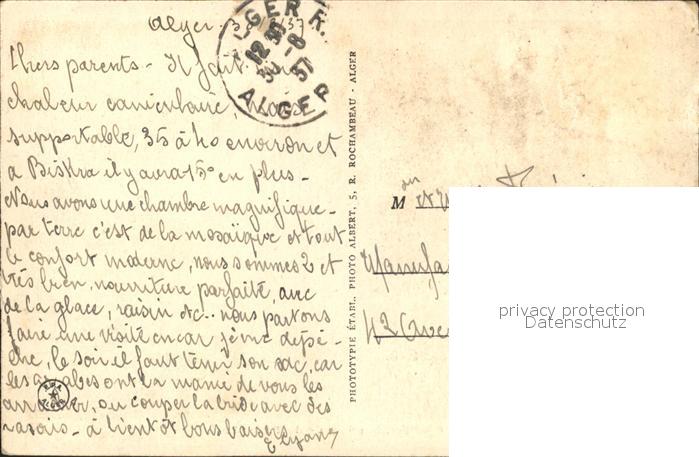 Alger 30/8/37
Chers parents - Il fait une
chaleur caniculaire, mais
supportable, 35 à 40 environ et
a Biskra il y aura 15° en plus -
Nous avons une chambre magnifique -
par terre c'est de la mosaïque et tout
le confort moderne, nous sommes 2 et
très bien, nourriture parfaite, avec
de la glace, raisin etc.. nous partons
faire une visite en car, je me dépê-
che, le soir il faut tenir son sac, car
les arabes ont la manie de vous les
arracher, ou couper la bride avec des
rasoirs - à bientôt bons baisers
ALGER R.P.
12 30
30 - 8
37
ALGER
RMA
ALGER
PHOTOTYPIE ÉTABL. PHOTO ALBERT, 5, R. ROCHAMBEAU - ALGER
M
42
privacy protection
Datenschutz